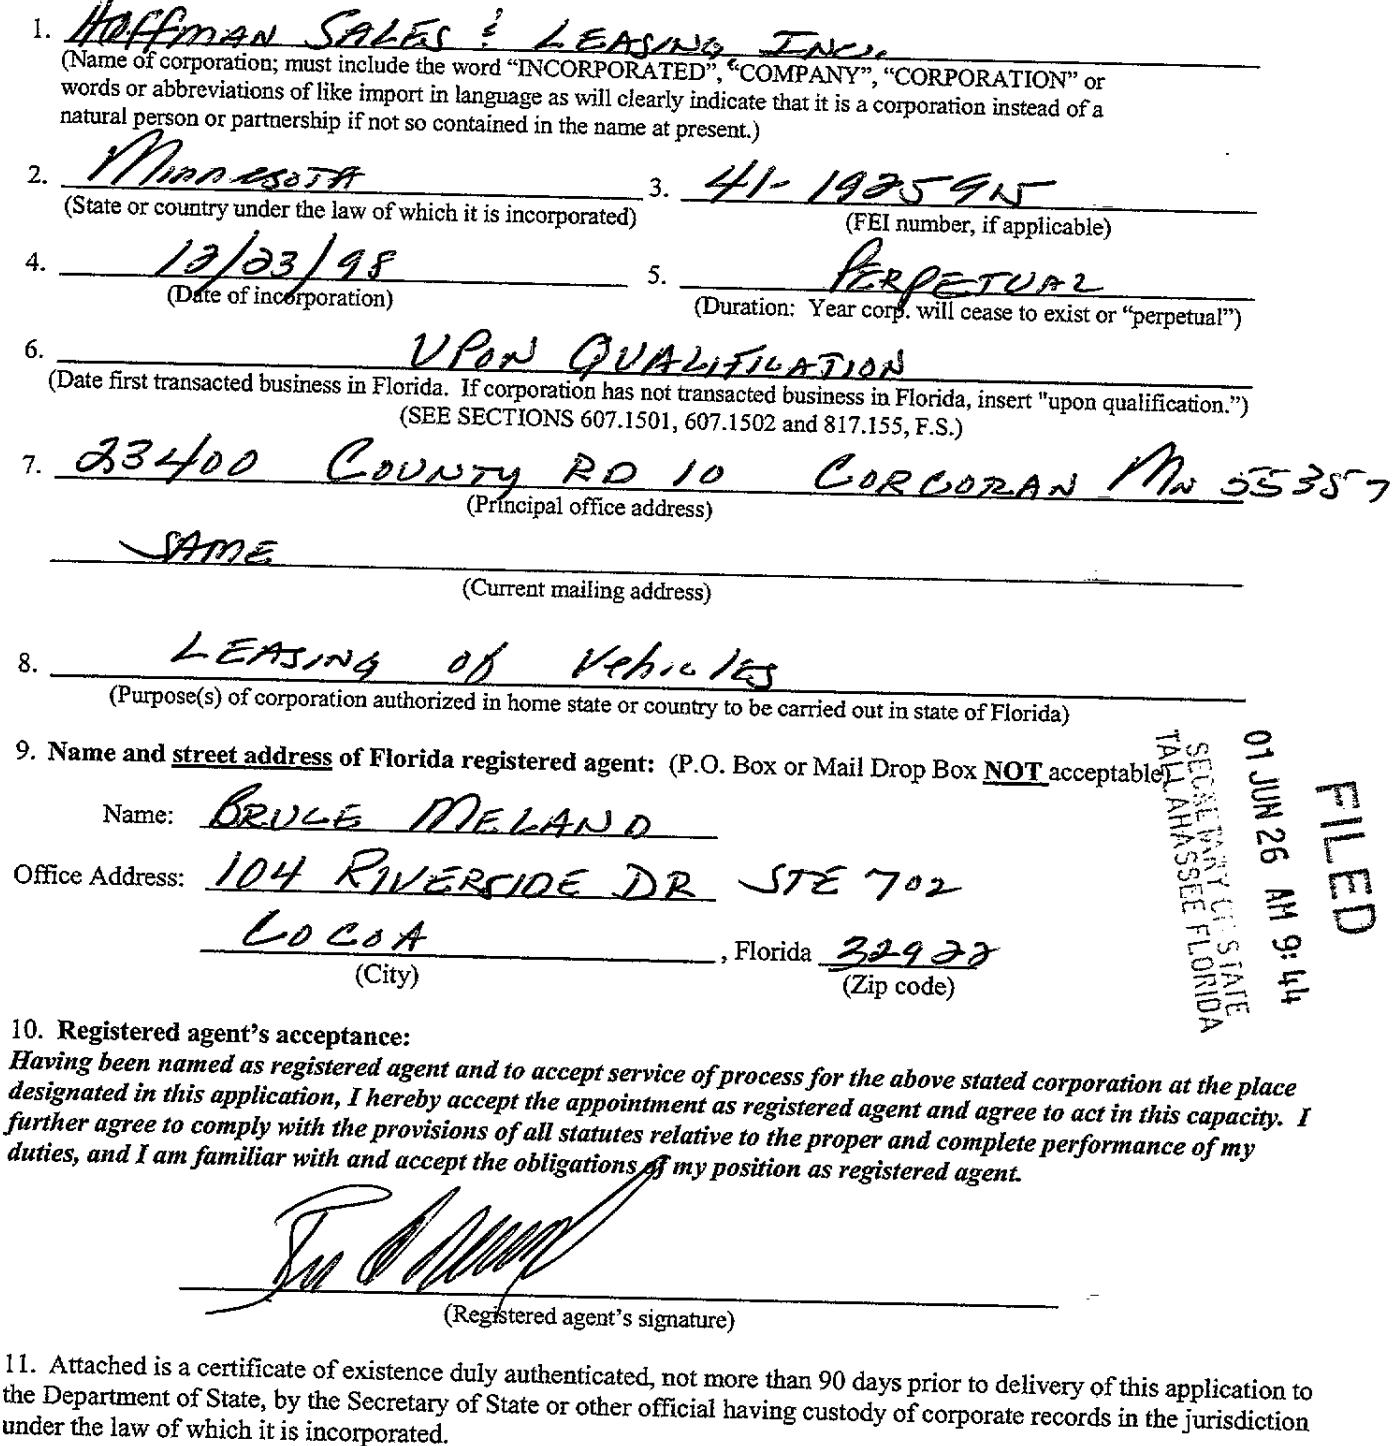 1. Hoffman Sales & Leasing Inc.
(Name of corporation; must include the word “INCORPORATED”, “COMPANY”, “CORPORATION” or
words or abbreviations of like import in language as will clearly indicate that it is a corporation instead of a
natural person or partnership if not so contained in the name at present.)
2. Minnesota 3. 41-
(State or country under the law of which it is incorporated) (FEI number, if applicable)
4. 12/23/98 5. PERPETUAL
(Date of incorporation) (Duration: Year corp. will cease to exist or “perpetual”)
6. UPON QUALIFICATION
(Date first transacted business in Florida. If corporation has not transacted business in Florida, insert "upon qualification.”)
(SEE SECTIONS 607.1501, 607.1502 and 817.155, F.S.)
7. 23400 COUNTY RD 10 CORCORAN MN 55357
(Principal office address)
SAME
(Current mailing address)
8. LEASING of Vehicles
(Purpose(s) of corporation authorized in home state or country to be carried out in state of Florida)
9. Name and street address of Florida registered agent: (P.O. Box or Mail Drop Box NOT acceptable)
Name: BRUCE MELAND
Office Address: 104 RIVERSIDE DR STE 702
COCOA, Florida 32922
(City) (Zip code)
FILED
01 JUN 26 AM 9:44
SECRETARY OF STATE
TALLAHASSEE FLORIDA
10. Registered agent’s acceptance:
Having been named as registered agent and to accept service of process for the above stated corporation at the place
designated in this application, I hereby accept the appointment as registered agent and agree to act in this capacity. I
further agree to comply with the provisions of all statutes relative to the proper and complete performance of my
duties, and I am familiar with and accept the obligations of my position as registered agent.
(Registered agent’s signature)
11. Attached is a certificate of existence duly authenticated, not more than 90 days prior to delivery of this application to
the Department of State, by the Secretary of State or other official having custody of corporate records in the jurisdiction
under the law of which it is incorporated.